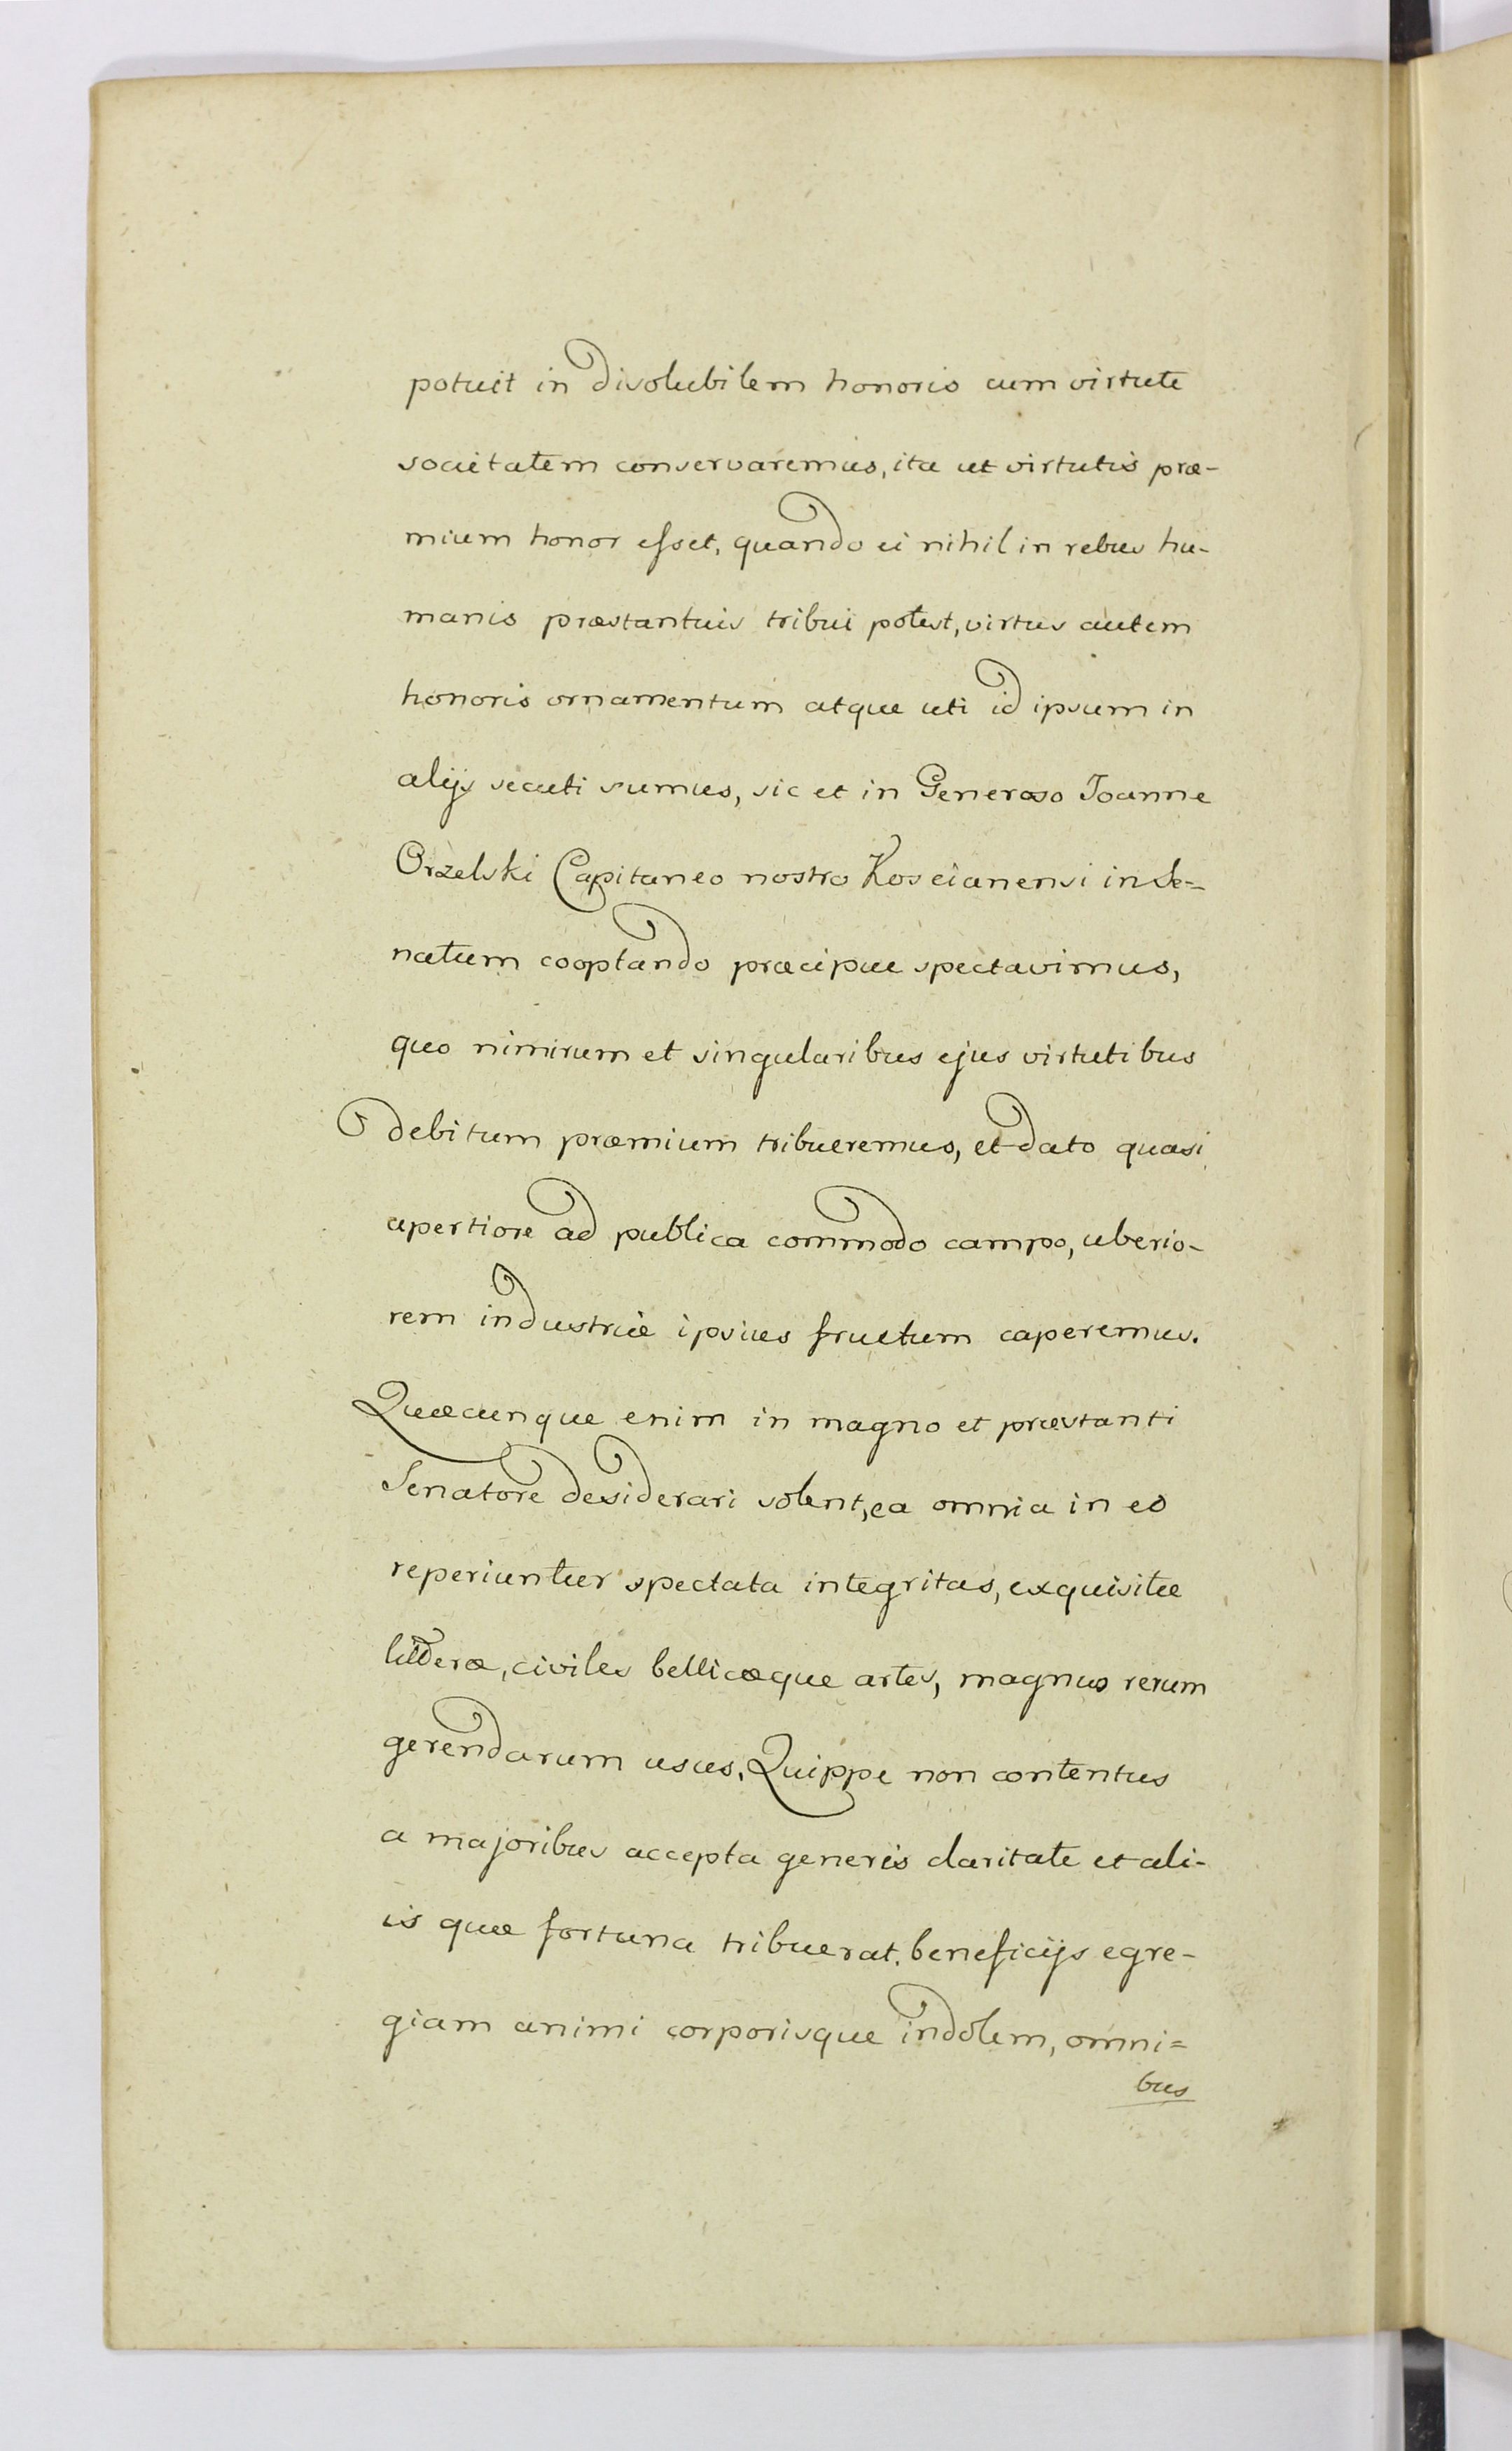 potuit in disolubilem honoris cum virtute
societatem conservaremus, ita ut virtutis præ-
mium honor esset, quando ei nihil in rebus hu-
manis præstantius tribui potest, virtus autem
honoris ornamentum atque uti id ipsum in
alijs secuti sumus, sic et in Generoso Joanne
Orzelski Capitaneo nostro Koscianensi in Se-
natum cooptando præcipue spectavimus,
quo nimirum et singularibus ejus virtutibus
debitum præmium tribueremus, et dato quasi
apertiore ad publica commodo campo, uberio-
rem industriæ ipsius fructum caperemus.
Quæcunque enim in magno et præstanti
Senatore desiderari solent, ea omnia in eo
reperiuntur spectata integritas, exquisitæ
litteræ, civiles bellicæque artes, magnus rerum
gerendarum usus, Quippe non contentus
a majoribus accepta generis claritate et ali-
is quæ fortuna tribuerat. beneficijs egre-
giam animi corporisque indolem, omni=
bus